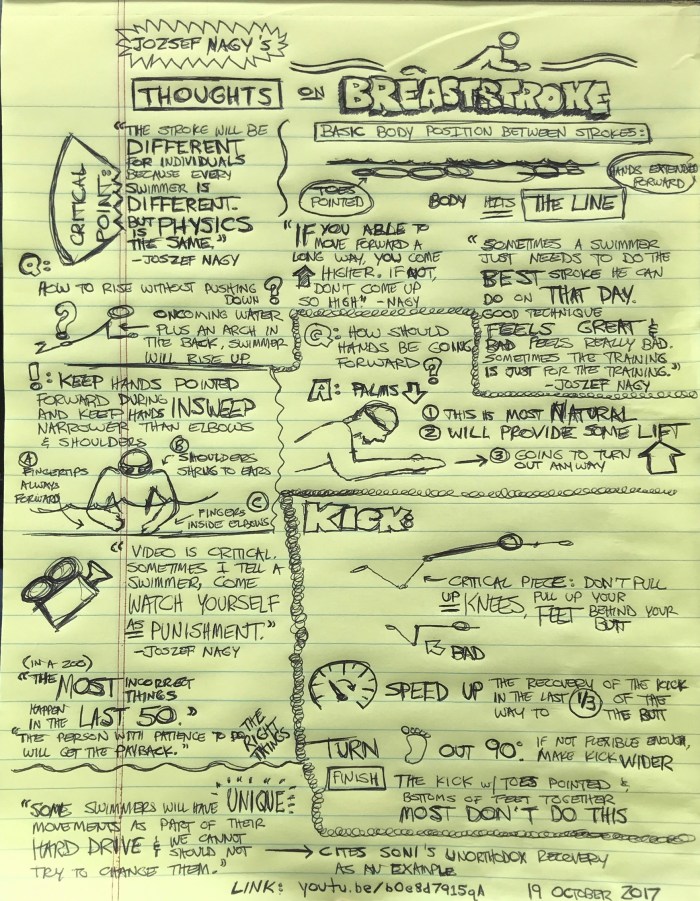 JOZSEF NAGY'S
THOUGHTS ON BREASTSTROKE
CRITICAL
POINT:
"THE STROKE WILL BE
DIFFERENT
FOR INDIVIDUALS
BECAUSE EVERY
SWIMMER IS
DIFFERENT.
BUT PHYSICS
IS THE SAME."
-JOSZEF NAGY
BASIC BODY POSITION BETWEEN STROKES:
TOES
POINTED
HANDS EXTENDED
FORWARD
BODY HITS THE LINE
"IF YOU ABLE TO
MOVE FORWARD A
LONG WAY, YOU COME
HIGHER. IF NOT,
DON'T COME UP
SO HIGH" -NAGY
"SOMETIMES A SWIMMER
JUST NEEDS TO DO THE
BEST STROKE HE CAN
DO ON THAT DAY.
GOOD TECHNIQUE
FEELS GREAT &
BAD FEELS REALLY BAD.
SOMETIMES THE TRAINING
IS JUST FOR THE TRAINING."
-JOSZEF NAGY
Q:
HOW TO RISE WITHOUT PUSHING
DOWN?
?
ONCOMING WATER
PLUS AN ARCH IN
THE BACK, SWIMMER
WILL RISE UP.
!: KEEP HANDS POINTED
FORWARD DURING
AND KEEP HANDS INSWEEP
NARROWER THAN ELBOWS
& SHOULDERS
A
FINGERTIPS
ALWAYS
FORWARD
B
SHOULDERS
SHRUG TO EARS
C
FINGERS
INSIDE ELBOWS
Q: HOW SHOULD
HANDS BE GOING
FORWARD?
A: PALMS
1 THIS IS MOST NATURAL
2 WILL PROVIDE SOME LIFT
3 GOING TO TURN
OUT ANYWAY
"VIDEO IS CRITICAL.
SOMETIMES I TELL A
SWIMMER, COME
WATCH YOURSELF
AS PUNISHMENT."
-JOSZEF NAGY
(IN A 200)
"THE MOST INCORRECT
THINGS
HAPPEN
IN THE LAST 50."
"THE PERSON WITH PATIENCE TO DO
THE
RIGHT
THINGS
WILL GET THE PAYBACK."
KICK:
CRITICAL PIECE: DON'T PULL
UP KNEES, PULL UP YOUR
FEET BEHIND YOUR
BUTT
BAD
SPEED UP THE RECOVERY OF THE KICK
IN THE LAST 1/3 OF THE
WAY TO THE BUTT
TURN OUT 90° IF NOT FLEXIBLE ENOUGH,
MAKE KICK WIDER
FINISH THE KICK W/ TOES POINTED &
BOTTOMS OF FEET TOGETHER
MOST DON'T DO THIS
"SOME SWIMMERS WILL HAVE UNIQUE
MOVEMENTS AS PART OF THEIR
HARD DRIVE & WE CANNOT
& SHOULD NOT
TRY TO CHANGE THEM."
CITES SONI'S UNORTHODOX RECOVERY
AS AN EXAMPLE
LINK: youtu.be/b0e8d7915qA 19 OCTOBER 2017